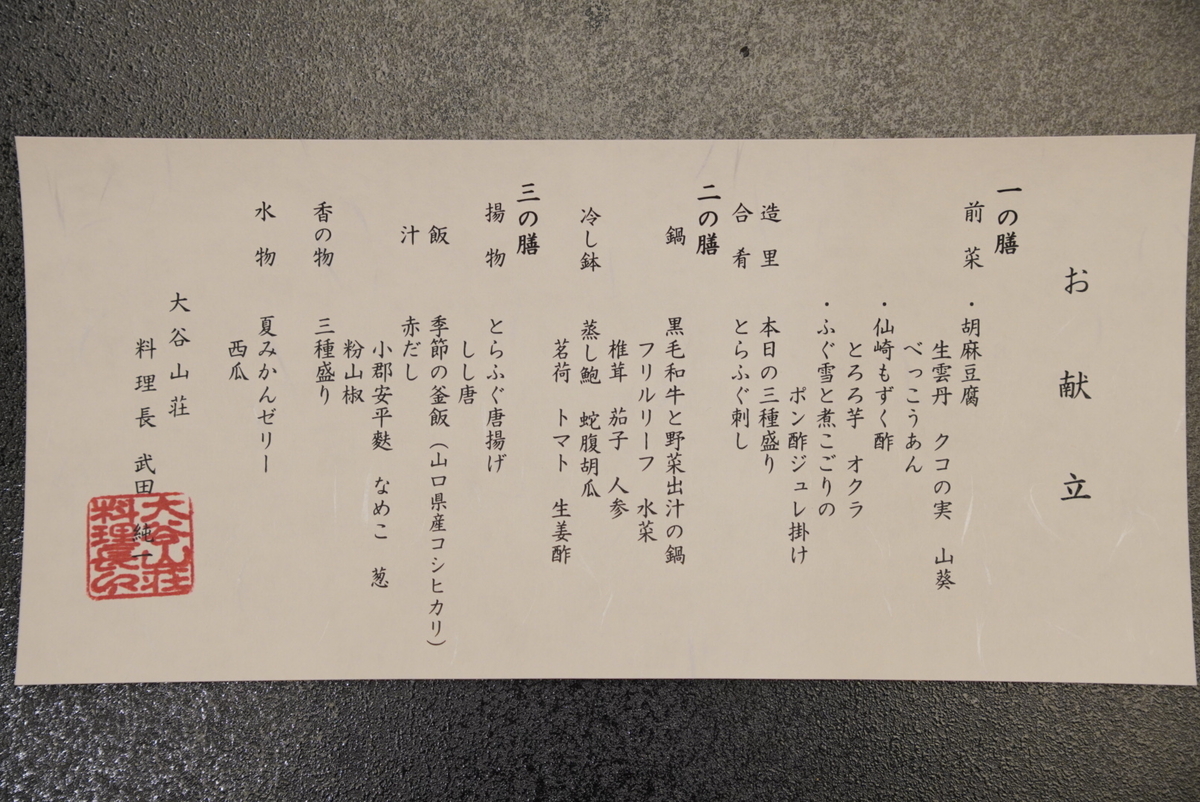 お献立
一の膳
前菜 ・胡麻豆腐
生雲丹 クコの実 山葵
べっこうあん
・仙崎もずく酢
とろろ芋 オクラ
・ふぐ雪と煮こごりの
ポン酢ジュレ掛け
造里 本日の三種盛り
合肴 とらふぐ刺し
二の膳
鍋 黒毛和牛と野菜出汁の鍋
フリルリーフ 水菜
椎茸 茄子 人参
冷し鉢 蒸し鮑 蛇腹胡瓜
茗荷 トマト 生姜酢
三の膳
揚物 とらふぐ唐揚げ
しし唐
飯 季節の釜飯（山口県産コシヒカリ）
汁 赤だし
小郡安平麩 なめこ 葱
粉山椒
香の物 三種盛り
水物 夏みかんゼリー
西瓜
大谷山荘
料理長 武田 純一
大谷山荘
料理長印